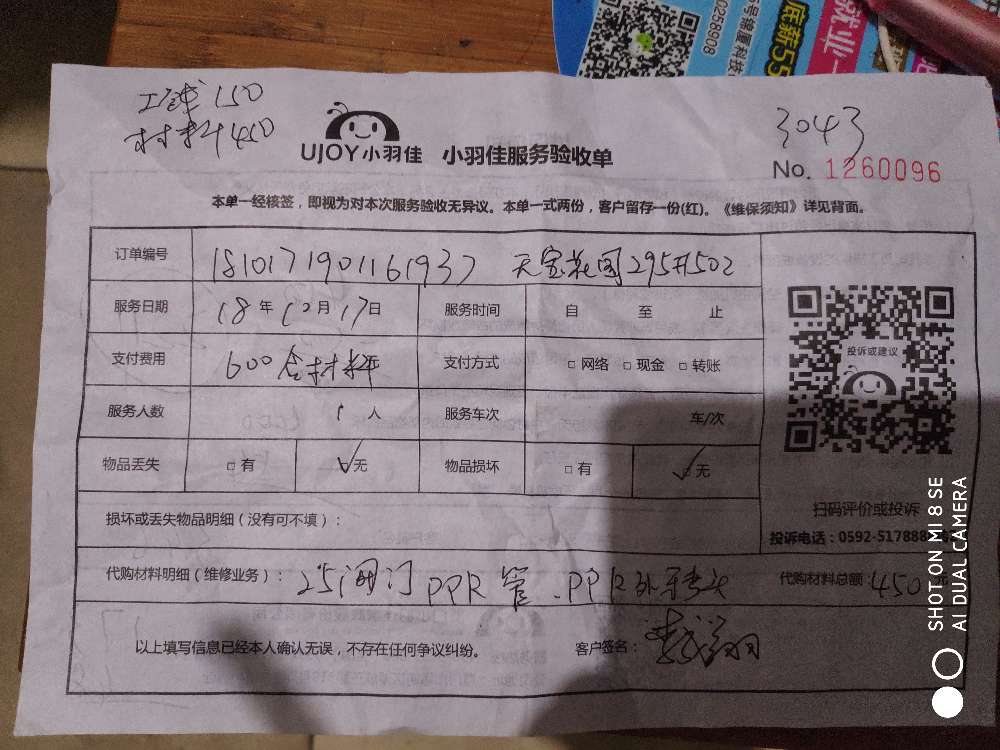 工钱150
材料450
3043
UJOY小羽佳 小羽佳服务验收单
No. 1260096
本单一经核签，即视为对本次服务验收无异议。本单一式两份，客户留存一份(红)。《维保须知》详见背面。
订单编号 1810171901161937 天宝花园295#502
服务日期 18年10月17日 服务时间 自 至 止
支付费用 600含材料 支付方式 □网络 □现金 □转账
投诉或建议
服务人数 1人 服务车次 车/次
物品丢失 □有 ☑无 物品损坏 □有 ☑无
扫码评价或投诉
损坏或丢失物品明细（没有可不填）：
投诉电话：0592-517888
代购材料明细（维修业务）： 25闸门 PPR管、PPR外牙弯头 代购材料总额：450元
以上填写信息已经本人确认无误，不存在任何争议纠纷。 客户签名：
SHOT ON MI 8 SE
AI DUAL CAMERA